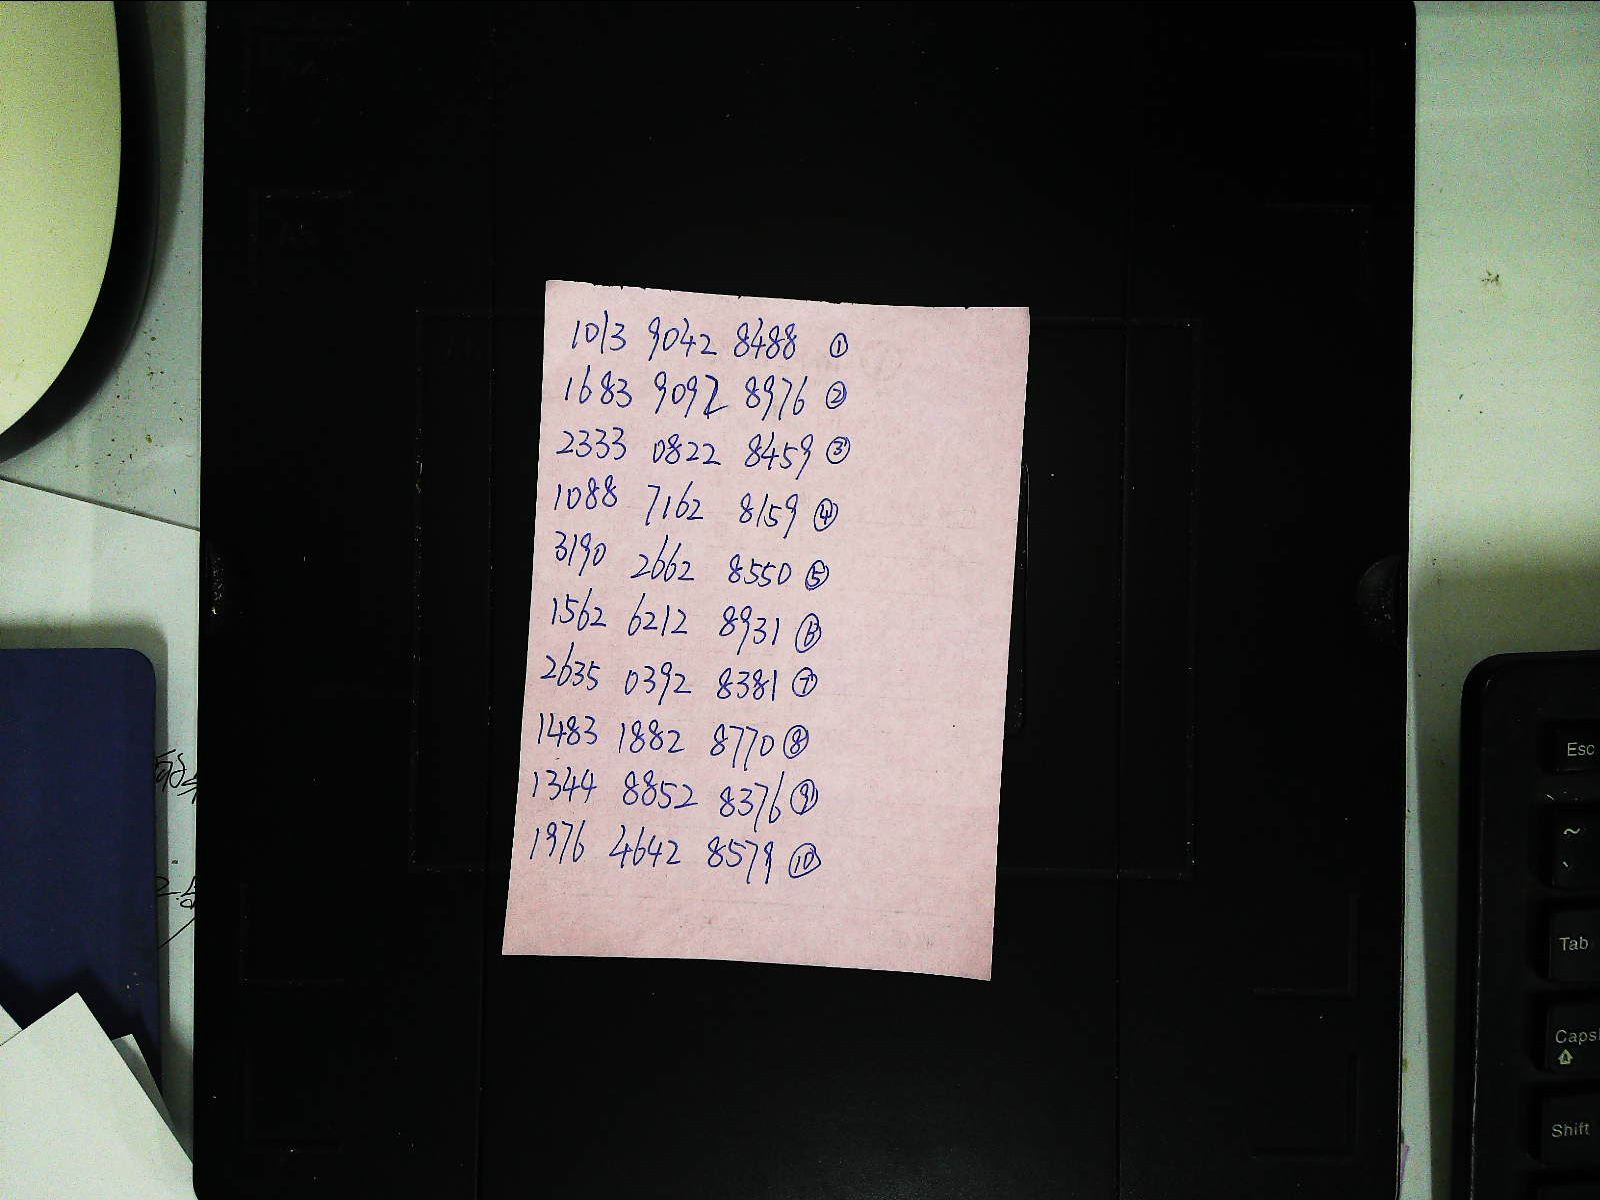 1013 9042 8488 ①
1683 9092 8976 ②
2333 0822 8459 ③
1088 7162 8159 ④
3190 2662 8550 ⑤
1562 6212 8931 ⑥
2635 0392 8381 ⑦
1483 1882 8770 ⑧
1344 8852 8376 ⑨
1976 4642 8579 ⑩
Esc
~
Tab
Caps
Shift